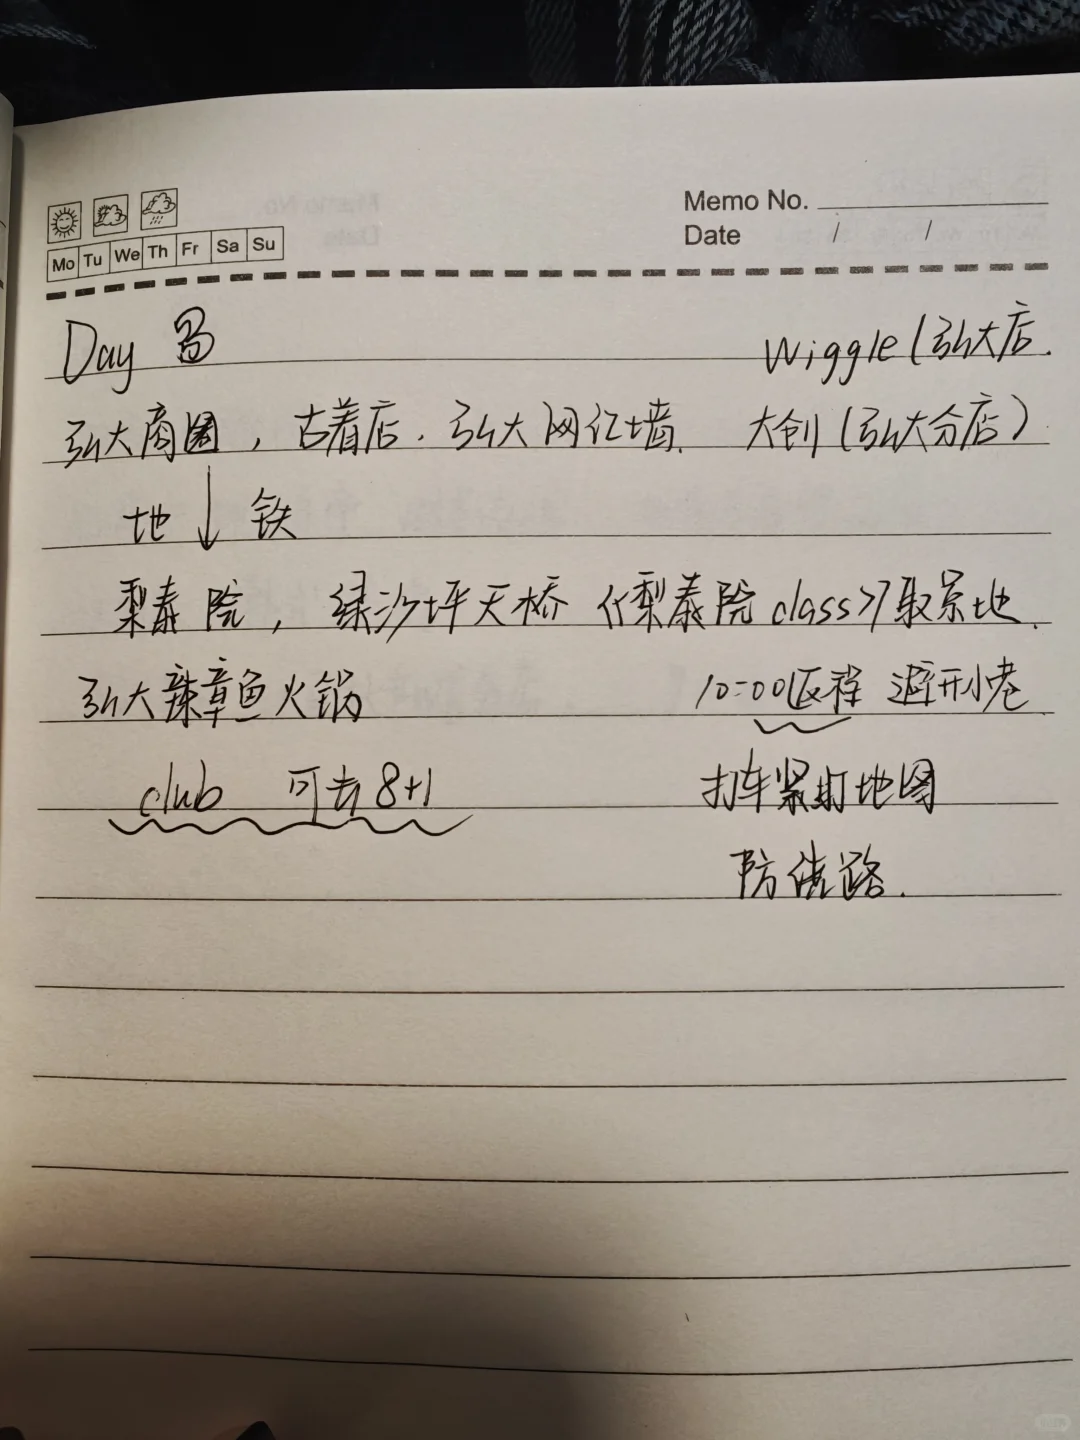 Memo No.
Mo Tu We Th Fr Sa Su
Date / /
Day
Wiggle (弘大店.
弘大商圈, 古着店. 弘大网红墙. 大创(弘大分店)
地↓铁
梨泰院, 绿沙坪天桥 《梨泰院class》取景地.
弘大辣章鱼火锅 10:00返程 避开小巷
club 可去8+1 打车紧盯地图
防绕路.